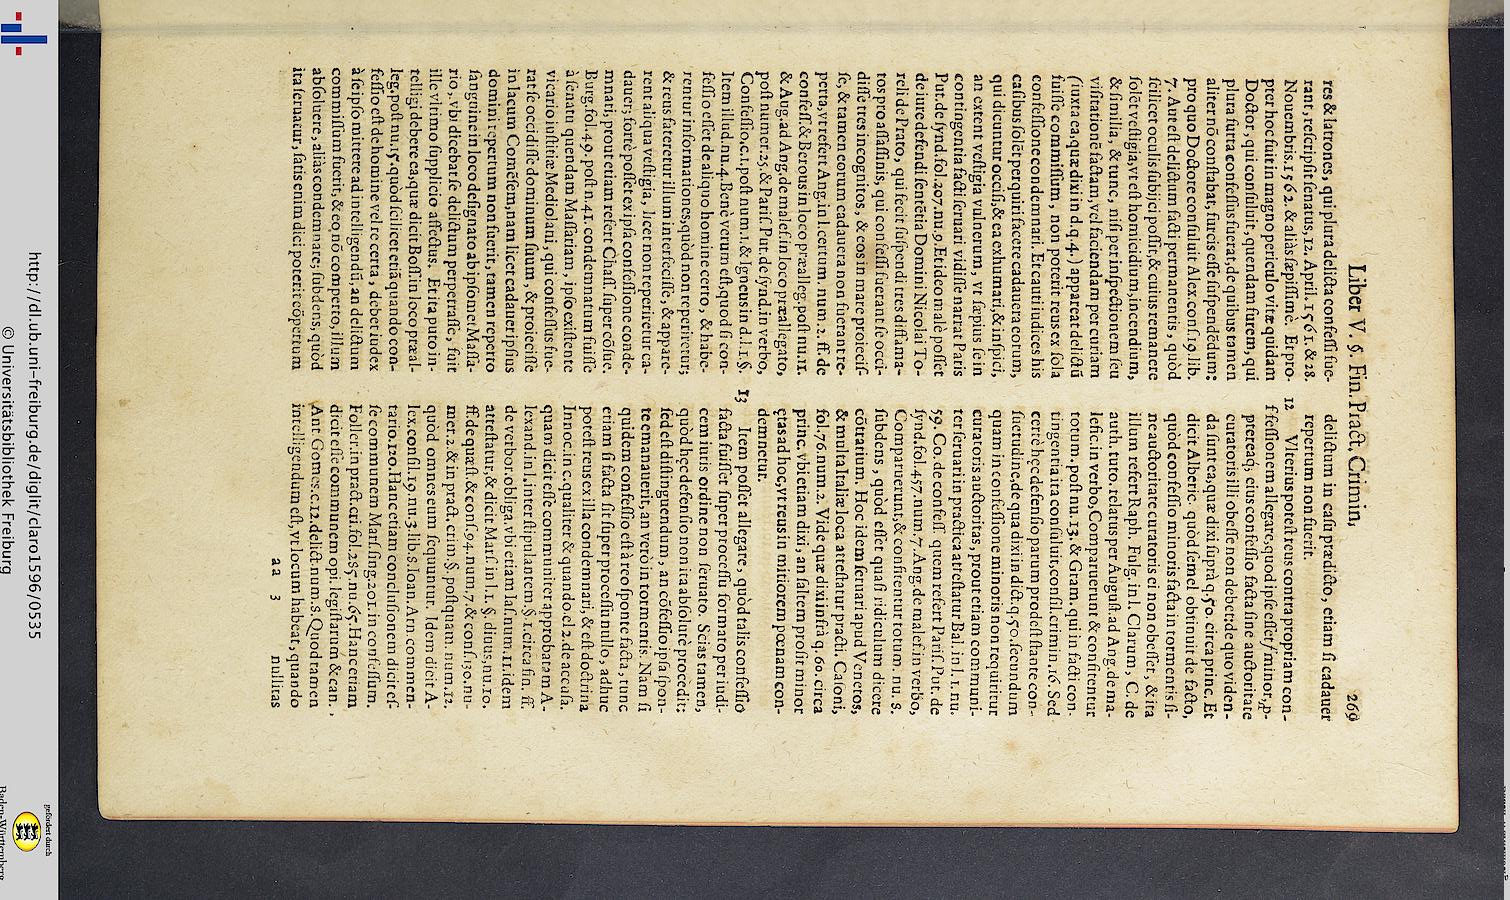 Liber V. §. Fin. Pract. Crimin, 269
res & latrones, qui plura delicta confessi fue-
rant, rescripsit senatus, 12. April. 1561. & 28.
Nouembris. 1562. & aliàs sæpissimè. Et pro-
pter hoc fuit in magno periculo vitæ quidam
Doctor, qui consuluit, quendam furem, qui
plura furta confessus fuerat, de quibus tamen
aliter nō constabat, furcis esse suspendēdum:
pro quo Doctore consuluit Alex. cons. 19. lib.
7. Aut est delictum facti permanentis, quòd
scilicet oculis subijci possit, & cuius remanere
solēt vestigia, vt est homicidium, incendium,
& similia, & tunc, nisi per inspectionem seu
visitationē factam, vel faciendam per curiam
(iuxta ea, quæ dixi in d. q. 4.) appareat delictū
fuisse commissum, non poterit reus ex sola
confessione condemnari. Et cauti iudices his
casibus solēt perquiri facere cadauera eorum,
qui dicuntur occisi, & ea exhumari, & inspici,
an extent vestigia vulnerum, vt sæpius se in
contingentia facti seruari vidisse narrat Paris
Put. de synd. fol. 207. nu. 9. Et ideo malè posset
de iure defendi sentētia Domini Nicolai To-
reli de Prato, qui fecit suspendi tres diffama-
tos pro assassinis, qui confessi fuerant se occi-
disse tres incognitos, & eos in mare proiecis-
se, & tamen eorum cadauera non fuerant re-
perta, vt refert Ang. in l. certum. num. 2. ff. de
confess. & Berous in loco præalleg. post nu. 11.
& Aug. ad Ang. de malef. in loco præallegato,
post numer. 25. & Paris. Put. de synd. in verbo,
Confessio. c. 1. post num. 1. & Igneus in d. l. 1. §.
Item illud. nu. 4. Benè verum est, quod si con-
fessio esset de aliquo homine certo, & habe-
rentur informationes, quòd non reperiretur;
& reus fateretur illum interfecisse, & appare-
rent aliqua vestigia, licet non reperiretur ca-
dauer; fortè posset ex ipsa confessione conde-
mnari; prout etiam refert Chass. super cōsue.
Burg. fol. 49. post n. 41. condemnatum fuisse
à senatu quendam Massariam, ipso existente
vicario iustitiæ Mediolani, qui confessus fue-
rat se occidisse dominum suum, & proiecisse
in lacum Comēsem, nam licet cadauer ipsius
domini repertum non fuerit, tamen reperto
sanguine in loco designato ab ipsomet Massa-
rio, vbi dicebat se delictum perpetrasse, fuit
ille vltimo supplicio affectus. Et ita puto in-
telligi debere ea, quæ dicit Boss. in loco præal-
leg. post nu. 15. quòd scilicet etiā quando con-
fessio est de homine vel re certa, debet iudex
à se ipso mittere ad intelligendū, an delictum
commissum fuerit, & eo nō comperto, illum
absoluere, aliàs condemnare; subdens, quòd
ita seruatur, satis enim dici poterit cōpertum
delictum in casu prædicto, etiam si cadauer
repertum non fuerit.
12 Vlterius potest reus contra propriam con-
fessionem allegare, quod ipse esset minor, p-
pterea q̃ eius confessio facta sine auctoritate
curatoris illi obesse non debet: de quo viden-
da sunt ea, quæ dixi suprà q. 50. circa princ. Et
dicit Alberic. quòd semel obtinuit de facto,
quòd confessio minoris facta in tormentis si-
ne auctoritate curatoris ei non obesset, & ita
illum refert Raph. Fulg. in l. Clarum, C. de
auth. tuto. relatus per August. ad Ang. de ma-
lefic. in verbo, Comparuerunt & confitentur
totum. post nu. 13. & Gram. qui in facti con-
tingentia ita consuluit, consil. crimin. 16. Sed
certè hęc defensio parum prodest stante con-
suetudine, de qua dixi in dict. q. 50. secundum
quam in confessione minoris non requiritur
curatoris auctoritas, prout etiam communi-
ter seruari in practica attestatur Bal. in l. 1. nu.
59. Co. de confess. quem refert Paris. Put. de
synd. fol. 457. num. 7. Ang. de malef. in verbo,
Comparuerunt, & confitentur totum. nu. 8.
subdens, quòd esset quasi ridiculum dicere
cōtrarium. Hoc idem seruari apud Venetos,
& multa Italiæ loca attestatur pract. Casoni,
fol. 76. num. 2. Vide quæ dixi infrà q. 60. circa
princ. vbi etiam dixi, an saltem prosit minor
ętas ad hoc, vt reus in mitiorem pœnam con-
demnetur.
13 Item posset allegare, quòd talis confessio
facta fuisset super processu formato per iudi-
cem iuris ordine non seruato. Scias tamen,
quòd hęc defensio non ita absolutè procedit:
sed est distinguendum, an cōfessio ipsa spon-
te emanauerit, an verò in tormentis. Nam si
quidem confessio est à reo sponte facta, tunc
etiam si facta sit super processu nullo, adhuc
potest reus ex illa condemnari, & est doctrina
Innoc. in c. qualiter & quando. el 2. de accusa.
quam dicit esse communiter approbatam A-
lexand. in l. inter stipulantem. §. 1. circa fin. ff.
de verbor. obliga. vbi etiam Ias. num. 11. idem
attestatur, & dicit Mars. in l. 1. §. diuus, nu. 10.
ff. de quæst. & cons. 94. num. 7. & cons. 130. nu-
mer. 2. & in pract. crim. §. postquam. num. 12.
quòd omnes eum sequuntur. Idem dicit A-
lex. consil. 10. nu. 3. lib. 5. Ioan. Arn. commen-
tario. 120. Hanc etiam conclusionem dicit es-
se communem Mars. sing. 201. in confessum.
Foller. in pract. cri. fol. 255. nu. 65. Hanc etiam
dicit esse communem opi. legistarum & can.
Ant. Gomes. c. 12. delict. num. 8. Quod tamen
intelligendum est, vt locum habeat, quando
aa 3 nullitas
http://dl.ub.uni-freiburg.de/diglit/claro1596/0535
© Universitätsbibliothek Freiburg
gefördert durch
Baden-Württemberg